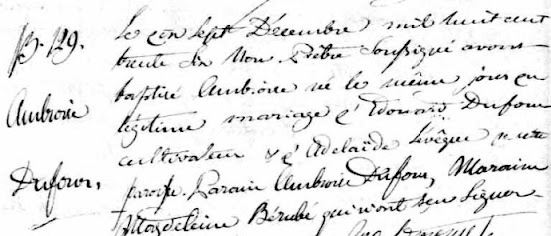 B. 129.
Ambroise
Dufour,
Le Sept Décembre mil huit cent
trente Six Nous Prêtre Soussigné avons
baptisé Ambroise né le même jour en
légitime mariage d'Edouard Dufour
cultivateur & d'Adelaïde Levêque de cette
paroisse. Parain Ambroise Dufour, Maraine
Magdeleine Bérubé qui n'ont seu Signer